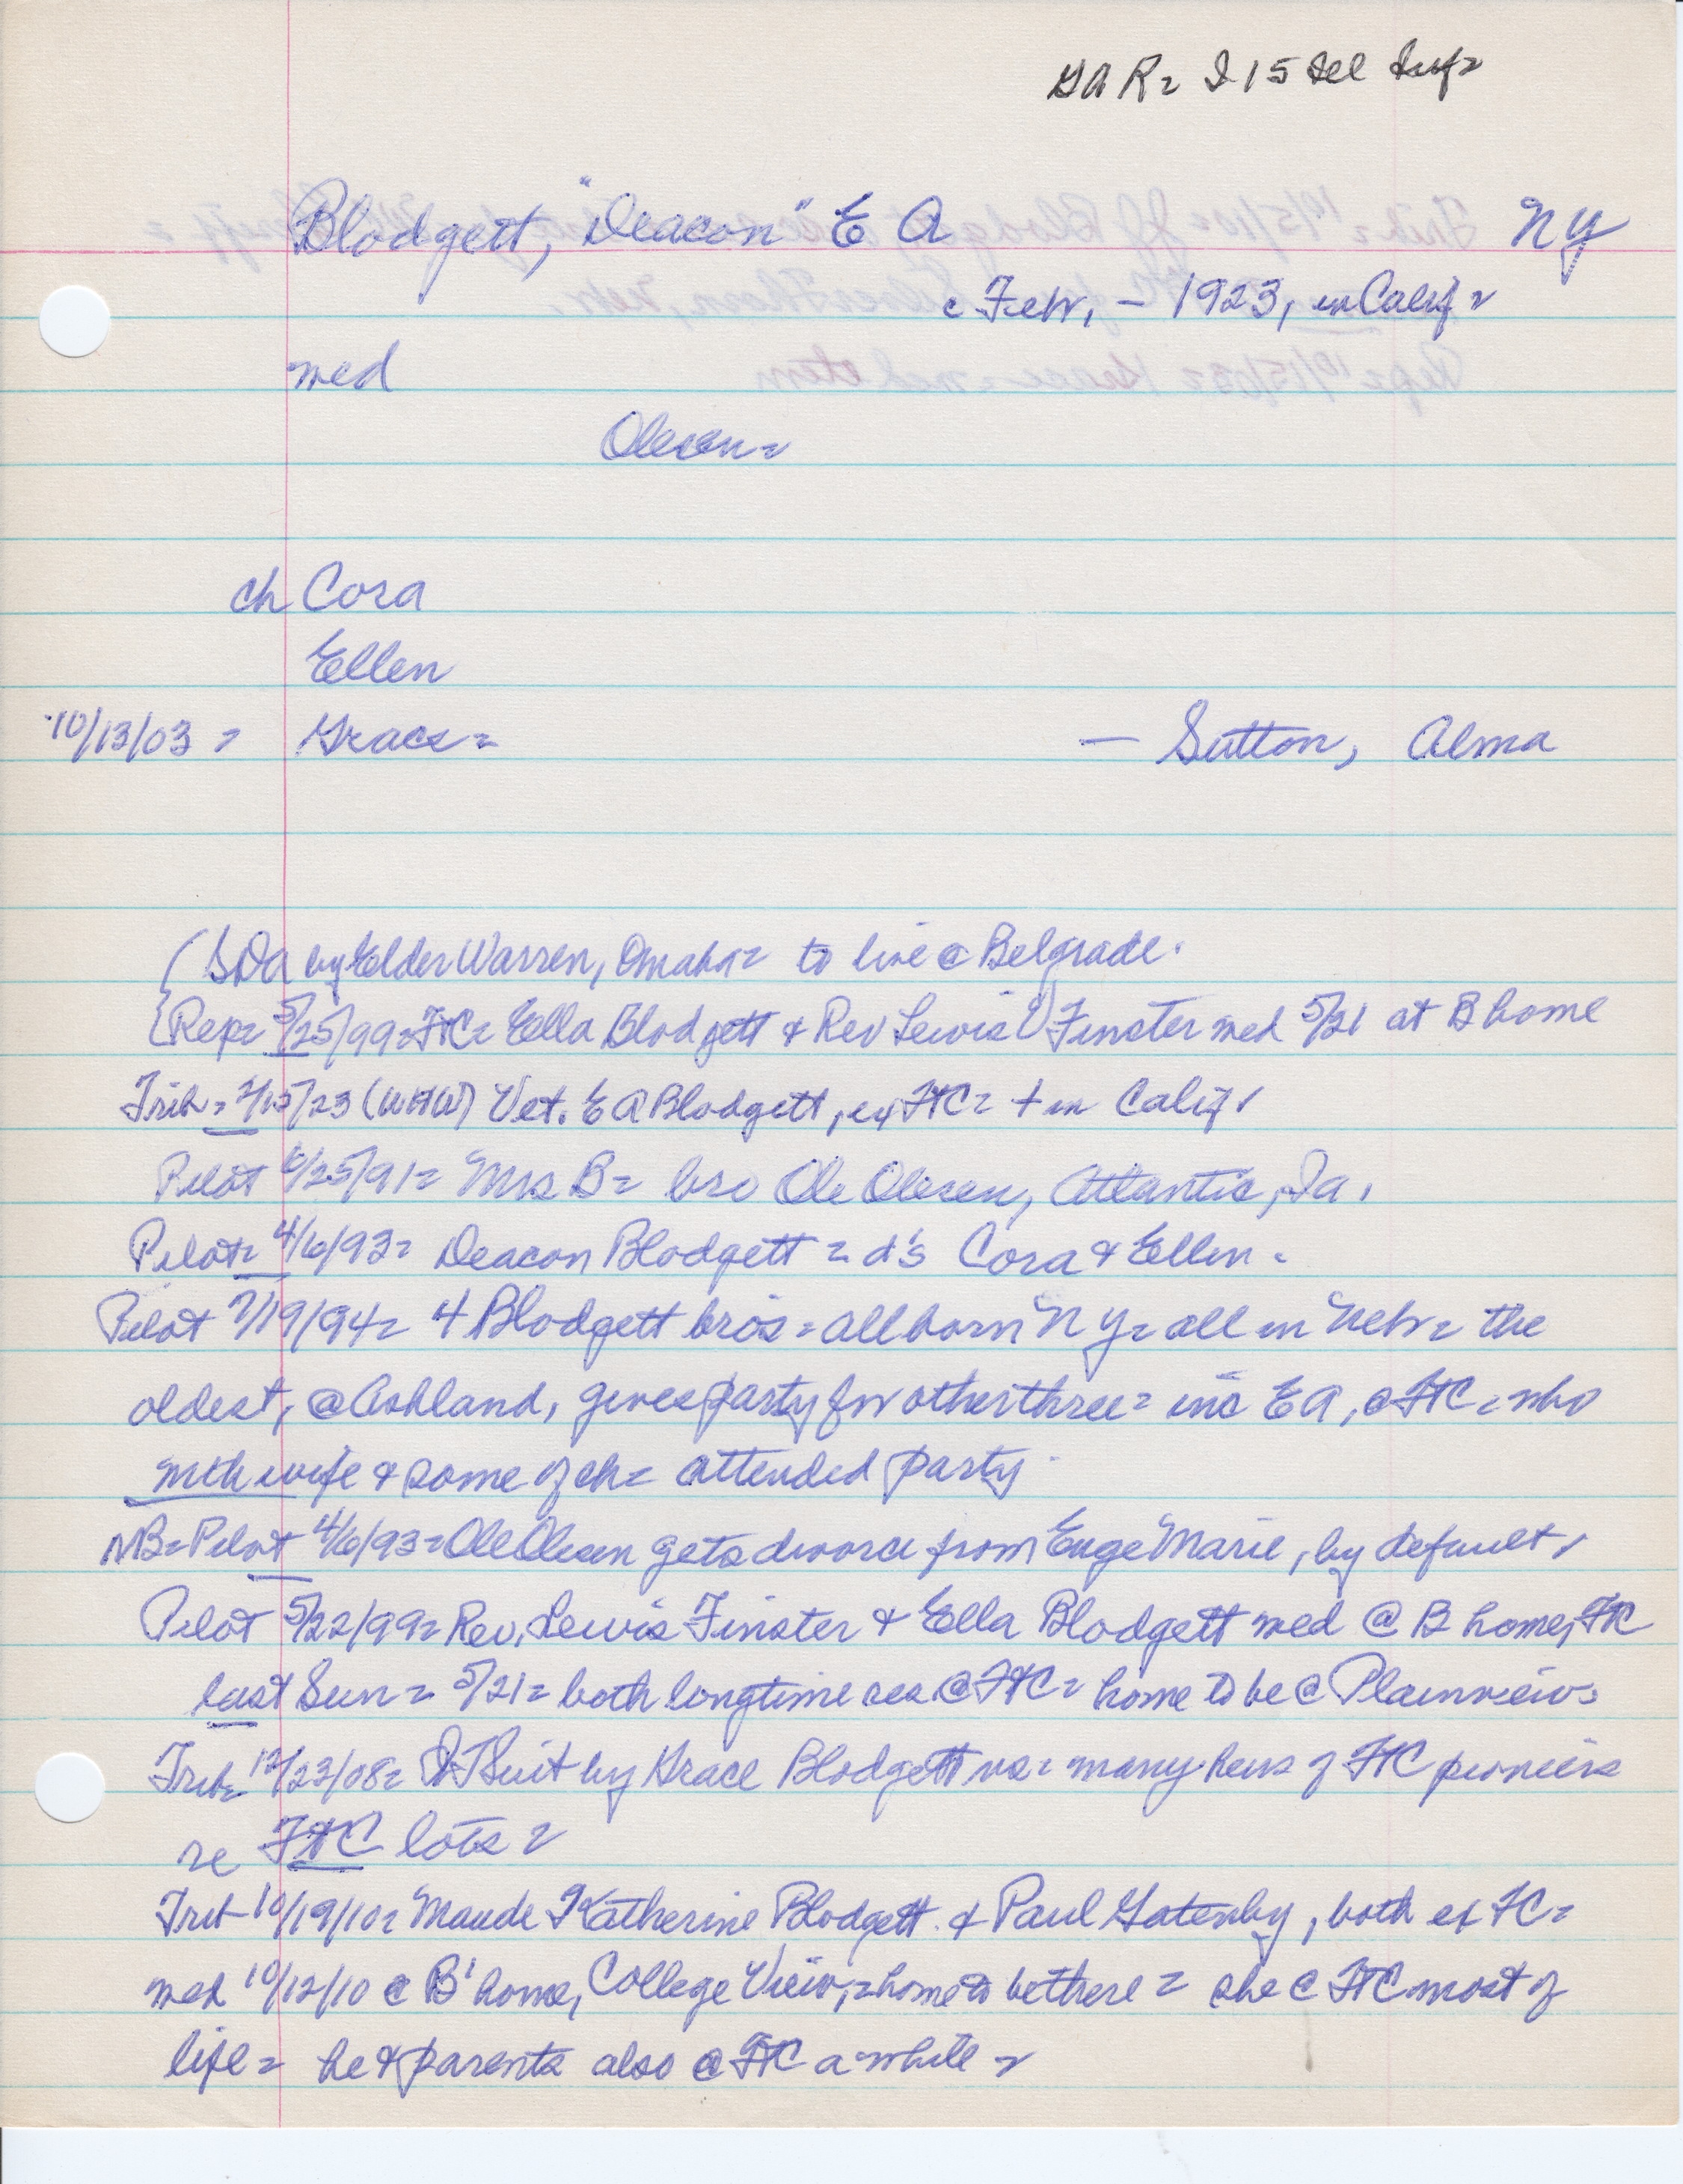 GAR= I 15 Ill Inf=
Blodgett, "Deacon" E A NY
c Feb. - 1923, in Calif=
med
Olesen=
ch Cora
Ellen
10/13/03 = Grace= — Sutton, Alma
(SDA by Elder Warren, Omaha= to live @ Belgrade.
Rep= 5/25/99=FtC= Ella Blodgett & Rev Lewis Finster med 5/21 at B home
Trib= 2/15/23 (WHW) Vet. E A Blodgett, ex FtC= + in Calif.
Pilot 6/25/91= Mrs B= bro Ole Olesen, Atlantic, Ia.
Pilot= 4/6/93= Deacon Blodgett = d's Cora & Ellen.
Pilot 7/19/94= 4 Blodgett bros= all born NY= all in Neb= the
oldest, @ Ashland, gives party for other three= inc E A, @ FtC= who
with wife & some of ch= attended party.
NB=Pilot 4/6/93=Ole Olesen gets divorce from Enge Marie, by default.
Pilot 5/22/99= Rev. Lewis Finster & Ella Blodgett med @ B home, FtC
last Sun= 5/21= both longtime res @ FtC= home to be @ Plainview.
Trib= 12/23/08= Suit by Grace Blodgett vs= many heirs of FtC pioneers
re FtC lots=
Trib 10/19/10= Maude Katherine Blodgett & Paul Gatenby, both ex FC=
med 10/12/10 @ B' home, College View,= home to be there = she @ FtC most of
life= he & parents also @ FtC a while=